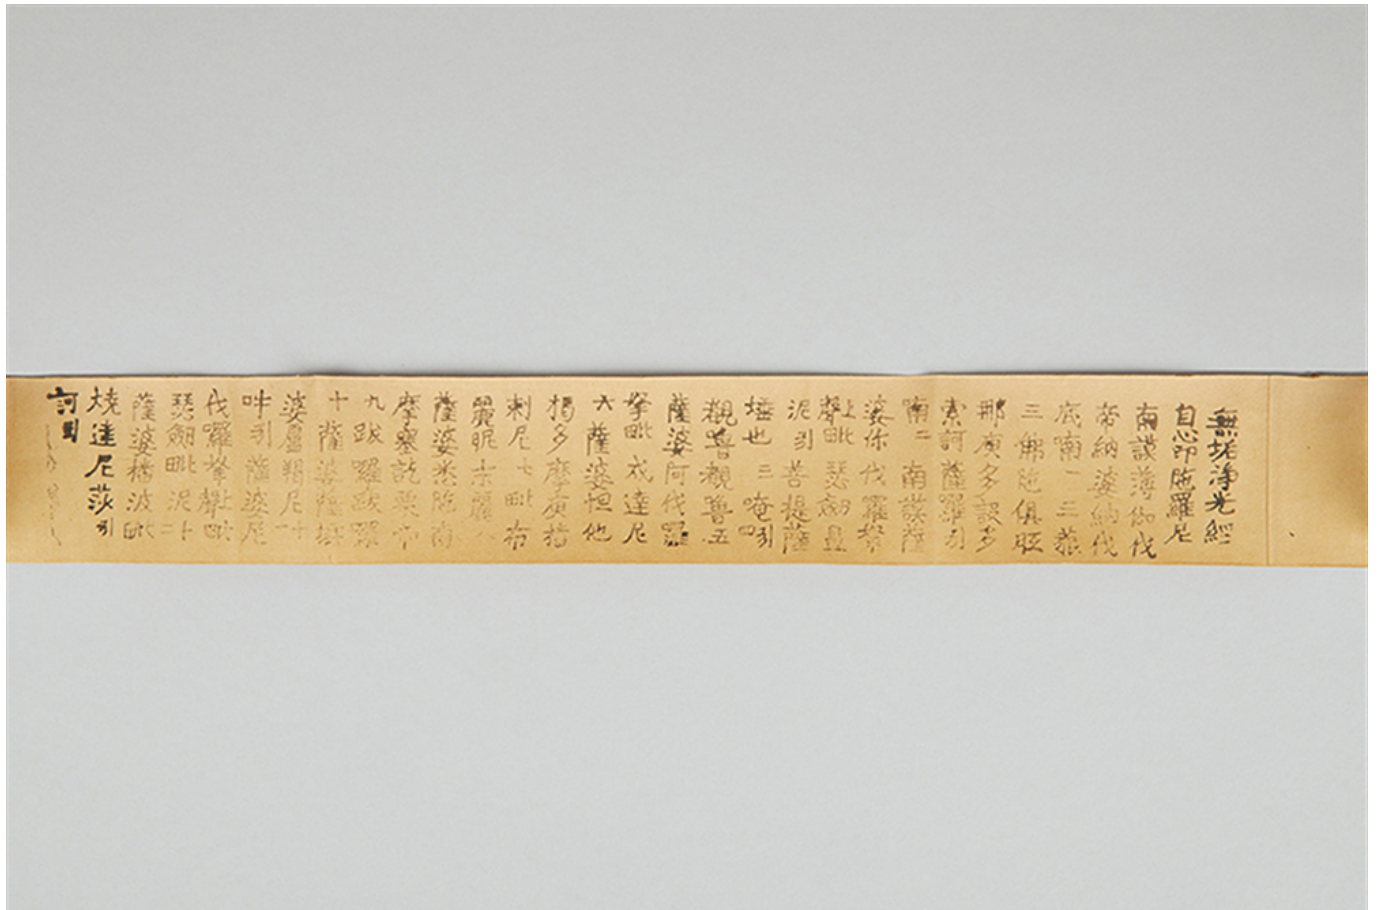 無垢淨光經
自心印陁羅尼
南謨薄伽伐
帝納婆納伐
底喃一三藐
三佛陁俱胝
那庾多設多
索訶薩羅引
喃二南謨薩
婆你伐羅拏
毗瑟劔
泥引菩提薩
埵也三唵引
覩嚕覩嚕五
薩婆阿伐羅
拏毗戍達尼
六薩婆怛他
揭多摩庾播
刺尼七毗布
麗昵末麗八
薩婆悉陁南
摩塞訖栗帝
九跋羅跋羅
十薩婆薩埵
婆盧羯尼十
吽引薩婆尼
伐囉拏毗
瑟劔毗泥十二
薩婆播波毗
燒達尼莎引
訶引